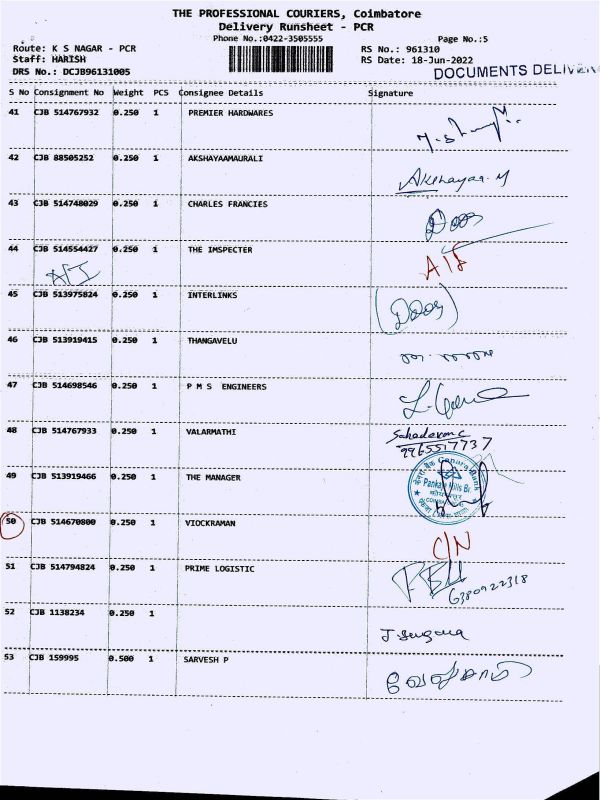 THE PROFESSIONAL COURIERS, Coimbatore
Delivery Runsheet - PCR
Phone No.:0422-3505555
Page No.:5
Route: K S NAGAR - PCR
RS No.: 961310
Staff: HARISH
RS Date: 18-Jun-2022
DRS No.: DCJB96131005
DOCUMENTS
S No Consignment No Weight PCS Consignee Details Signature
41 CJB 514767932 0.250 1 PREMIER HARDWARES
42 CJB 88505252 0.250 1 AKSHAYAAMURALI
Akshayaa.M
43 CJB 514748029 0.250 1 CHARLES FRANCIES
44 CJB 514554427 0.250 1 THE IMSPECTER
45 CJB 513975824 0.250 1 INTERLINKS
46 CJB 513919415 0.250 1 THANGAVELU
47 CJB 514698546 0.250 1 P M S ENGINEERS
48 CJB 514767933 0.250 1 VALARMATHI
9965517737
49 CJB 513919466 0.250 1 THE MANAGER
Canara Bank
50 CJB 514670800 0.250 1 VIOCKRAMAN
C/N
51 CJB 514794824 0.250 1 PRIME LOGISTIC
6380922318
52 CJB 1138234 0.250 1
53 CJB 159995 0.500 1 SARVESH P